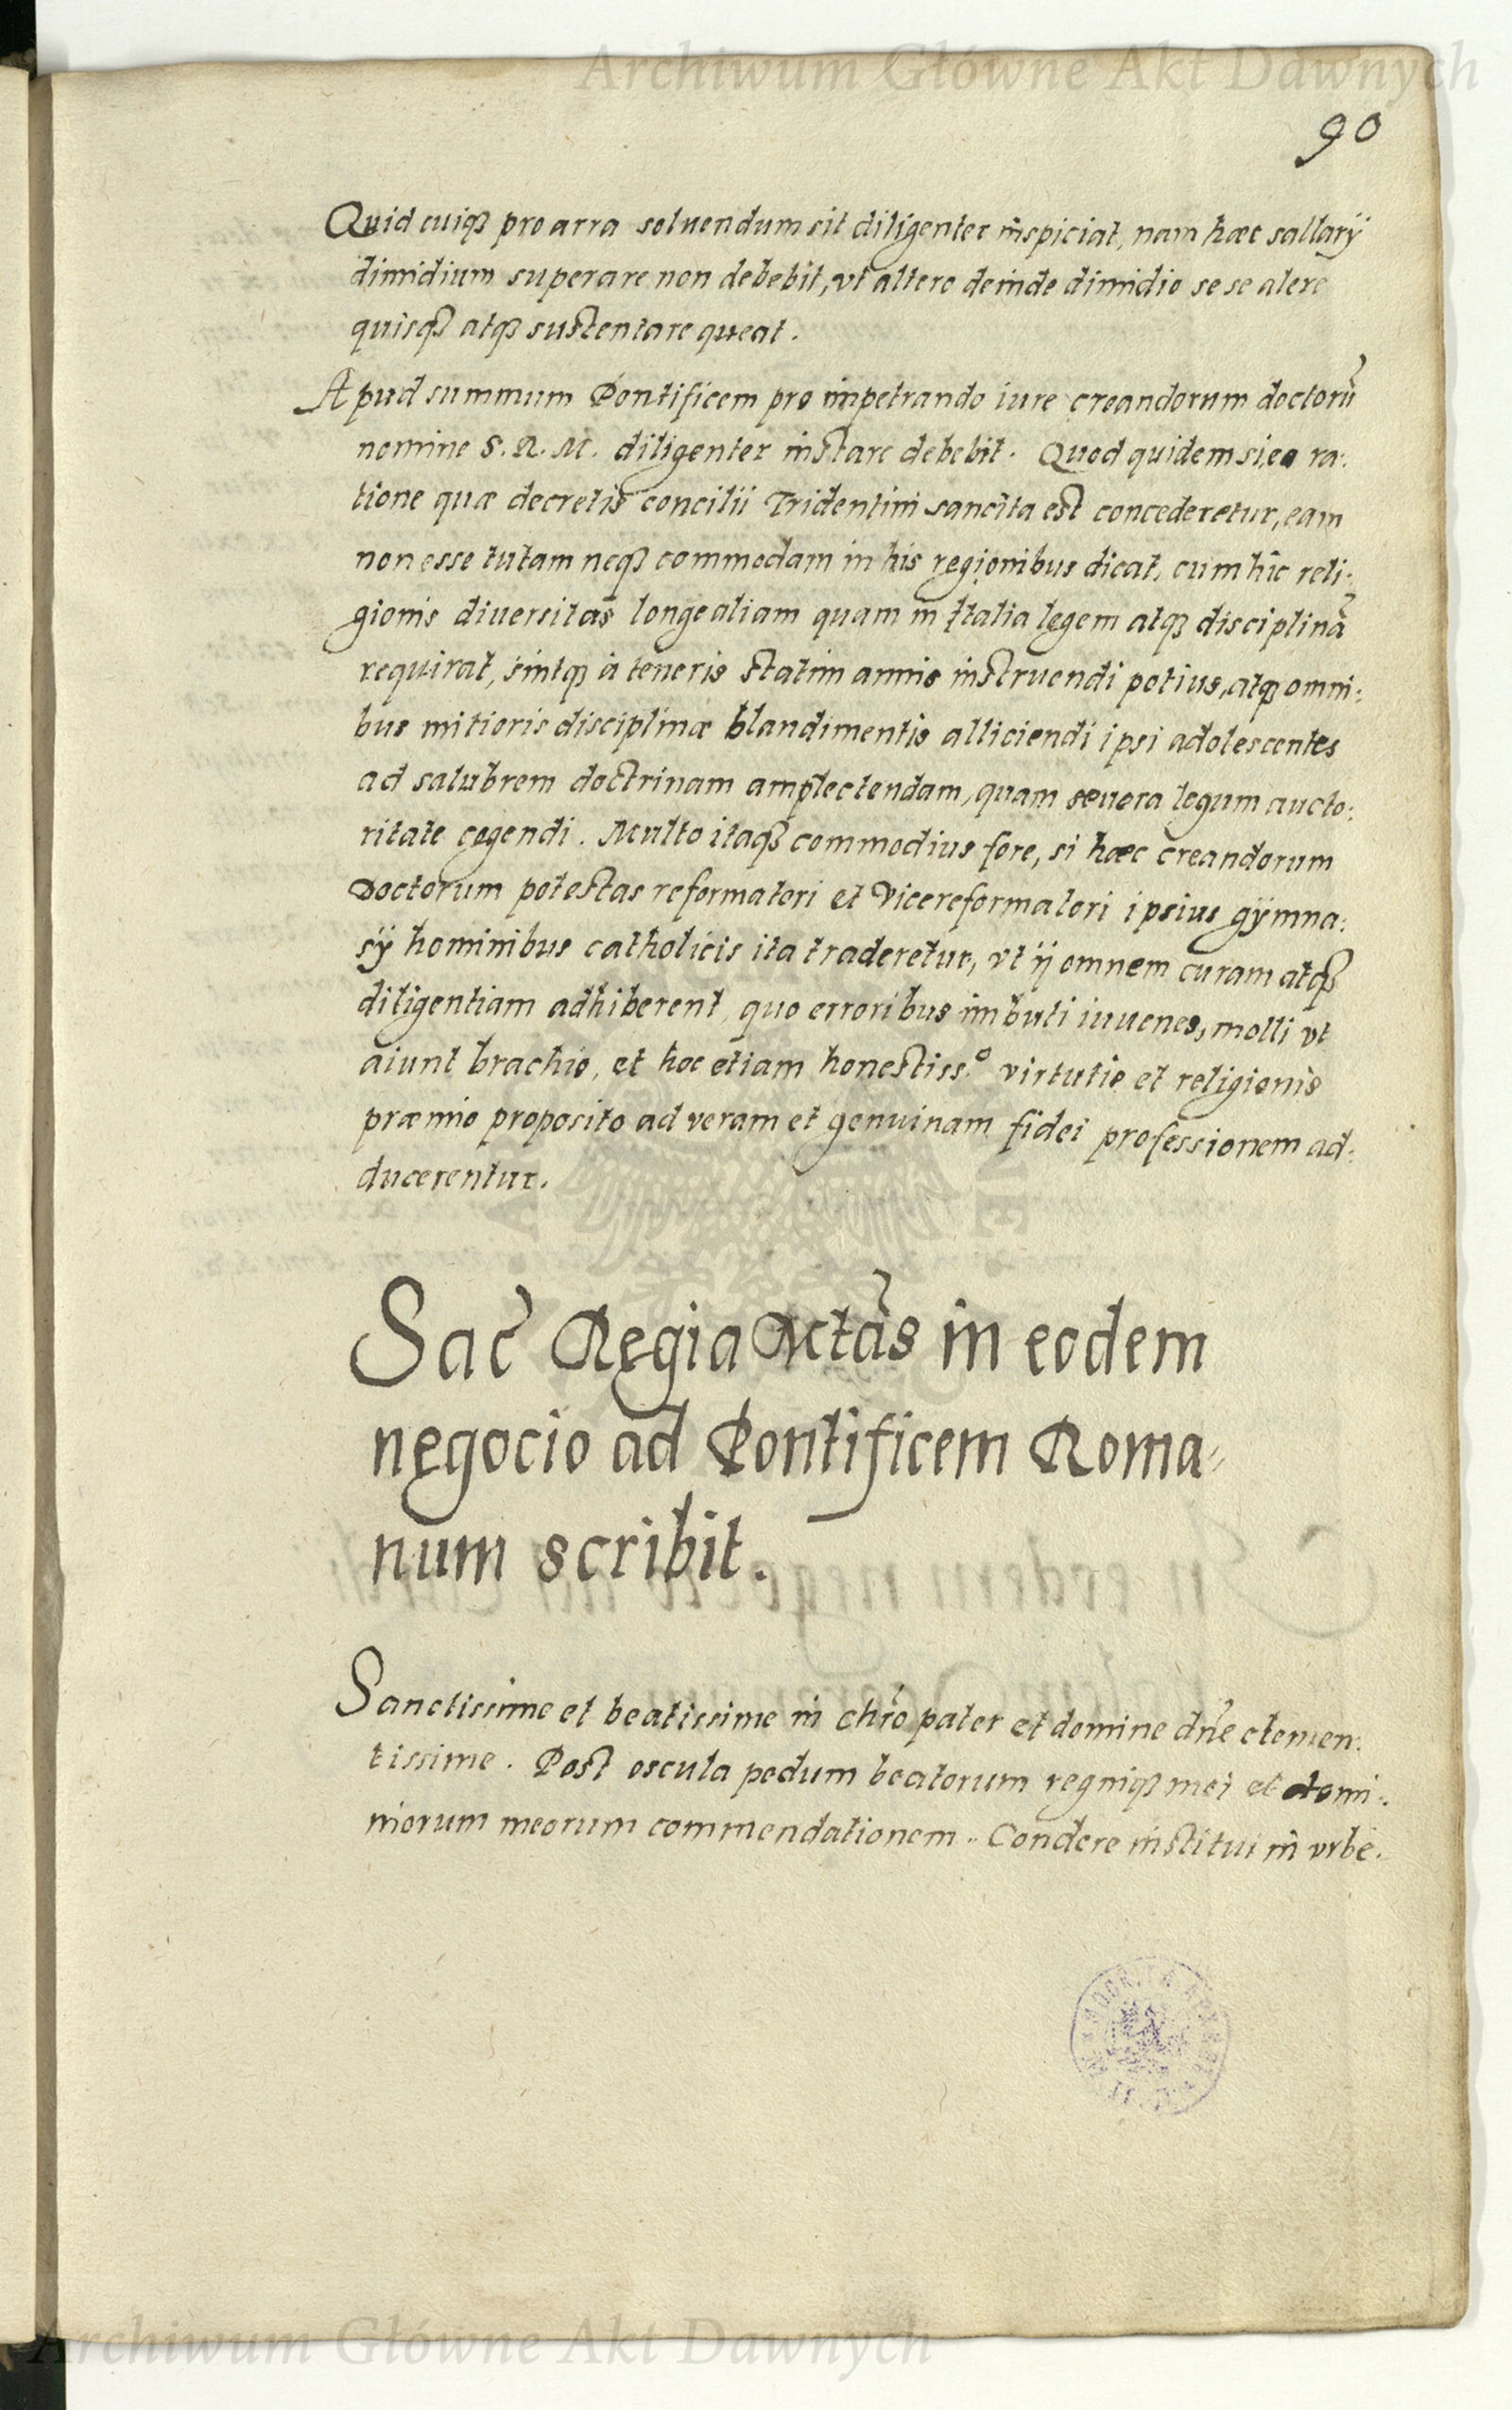 Archiwum Główne Akt Dawnych
90
Quid cuiqȝ pro arra soluendum sit diligenter inspiciat, nam hæc sallarÿ
dimidium superare non debebit, vt altero deinde dimidio se se alere
quisqȝ atqȝ sustentare queat.
Apud summum Pontificem pro impetrando iure creandorum doctorū
nomine S. R. M. diligenter instare debebit. Quod quidem si ea ra:
tione quæ decretis concilii Tridentini sancita est concederetur, eam
non esse tutam neqȝ commodam in his regionibus dicat, cum hic reli:
gionis diuersitas longe aliam quam in Italia legem atqȝ disciplinā
requirat, sintqȝ à teneris statim annis instruendi potius, atqȝ omni:
bus mitioris disciplinæ blandimentis alliciendi ipsi adolescentes
ad salubrem doctrinam amplectendam, quam seuera legum aucto:
ritate cogendi. Multo itaqȝ commodius fore, si hæc creandorum
Doctorum potestas reformatori et Vicereformatori ipsius gÿmna:
sÿ hominibus catholicis ita traderetur, vt ÿ omnem curam atqȝ
diligentiam adhiberent, quo erroribus imbuti iuuenes, molli vt
aiunt brachio, et hoc etiam honestiss.º virtutis et religionis
præmio proposito ad veram et genuinam fidei professionem ad:
ducerentur.
Sac̄ Regia Mtās in eodem
negocio ad Pontificem Roma:
num scribit.
Sanctissime et beatissime in chrō pater et domine dn̄e clemen:
tissime. Post oscula pedum beatorum regniqȝ mei et domi:
niorum meorum commendationem. Condere institui in vrbe.
Archiwum Główne Akt Dawnych